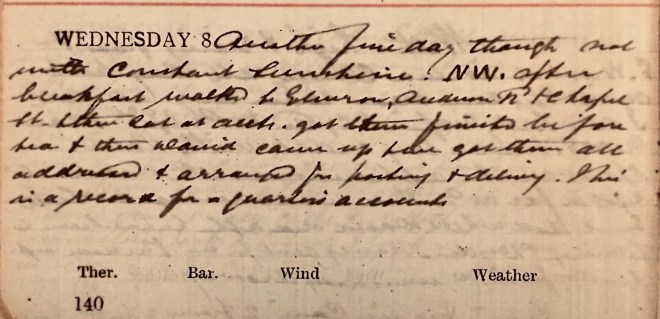 WEDNESDAY 8 Another fine day though not
with constant Sunshine. NW. after
breakfast walked to Elmrow, Rd & Chapel
St & then sat at accts. got them finished before
tea & then David came up & we got them all
addressed & arranged for posting & delivery. This
is a record for a quarter's accounts
Ther. Bar. Wind Weather
140